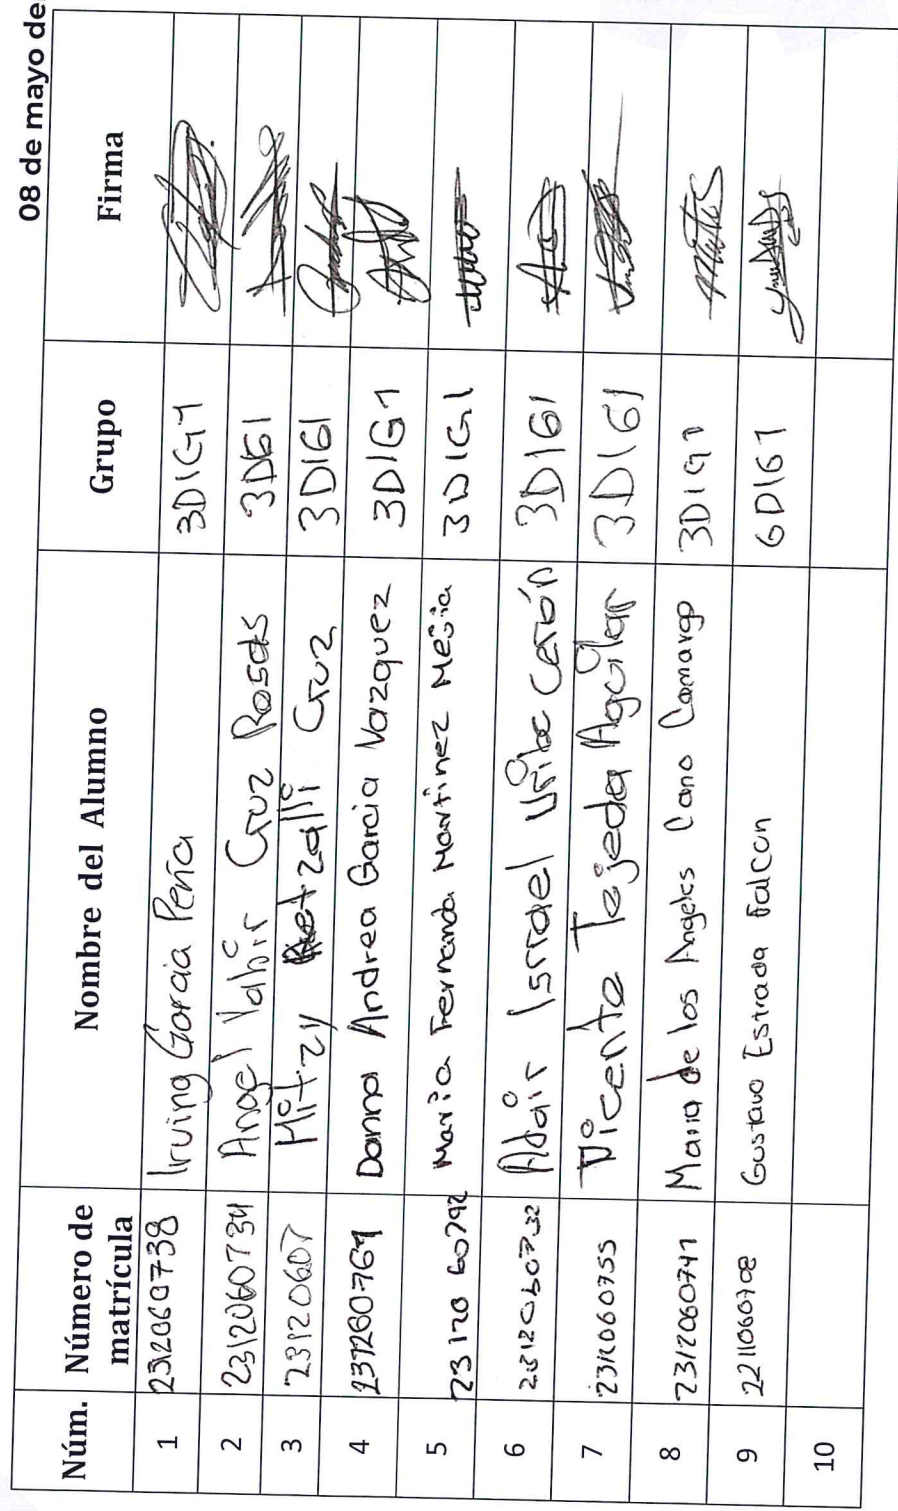 08 de mayo de
Núm. Número de matrícula Nombre del Alumno Grupo Firma
1 2312060738 Irving Garcia Peña 3DIG1
2 2312060734 Angel Yahir Cruz Rosas 3DG1
3 23120607 Mitzy Quetzalli Cruz 3DIG1
4 231260769 Danna Andrea Garcia Vazquez 3DIG1
5 2312060792 Maria Fernanda Martinez Mesia 3DIG1
6 2312060732 Adair Israel Uribe Cerón 3DIG1
7 2312060755 Vicente Tejeda Aguilar 3DIG1
8 2312060741 Maria de los Angeles Cano Camargo 3DIG1
9 2211060708 Gustavo Estrada Falcon 6DIG1
10